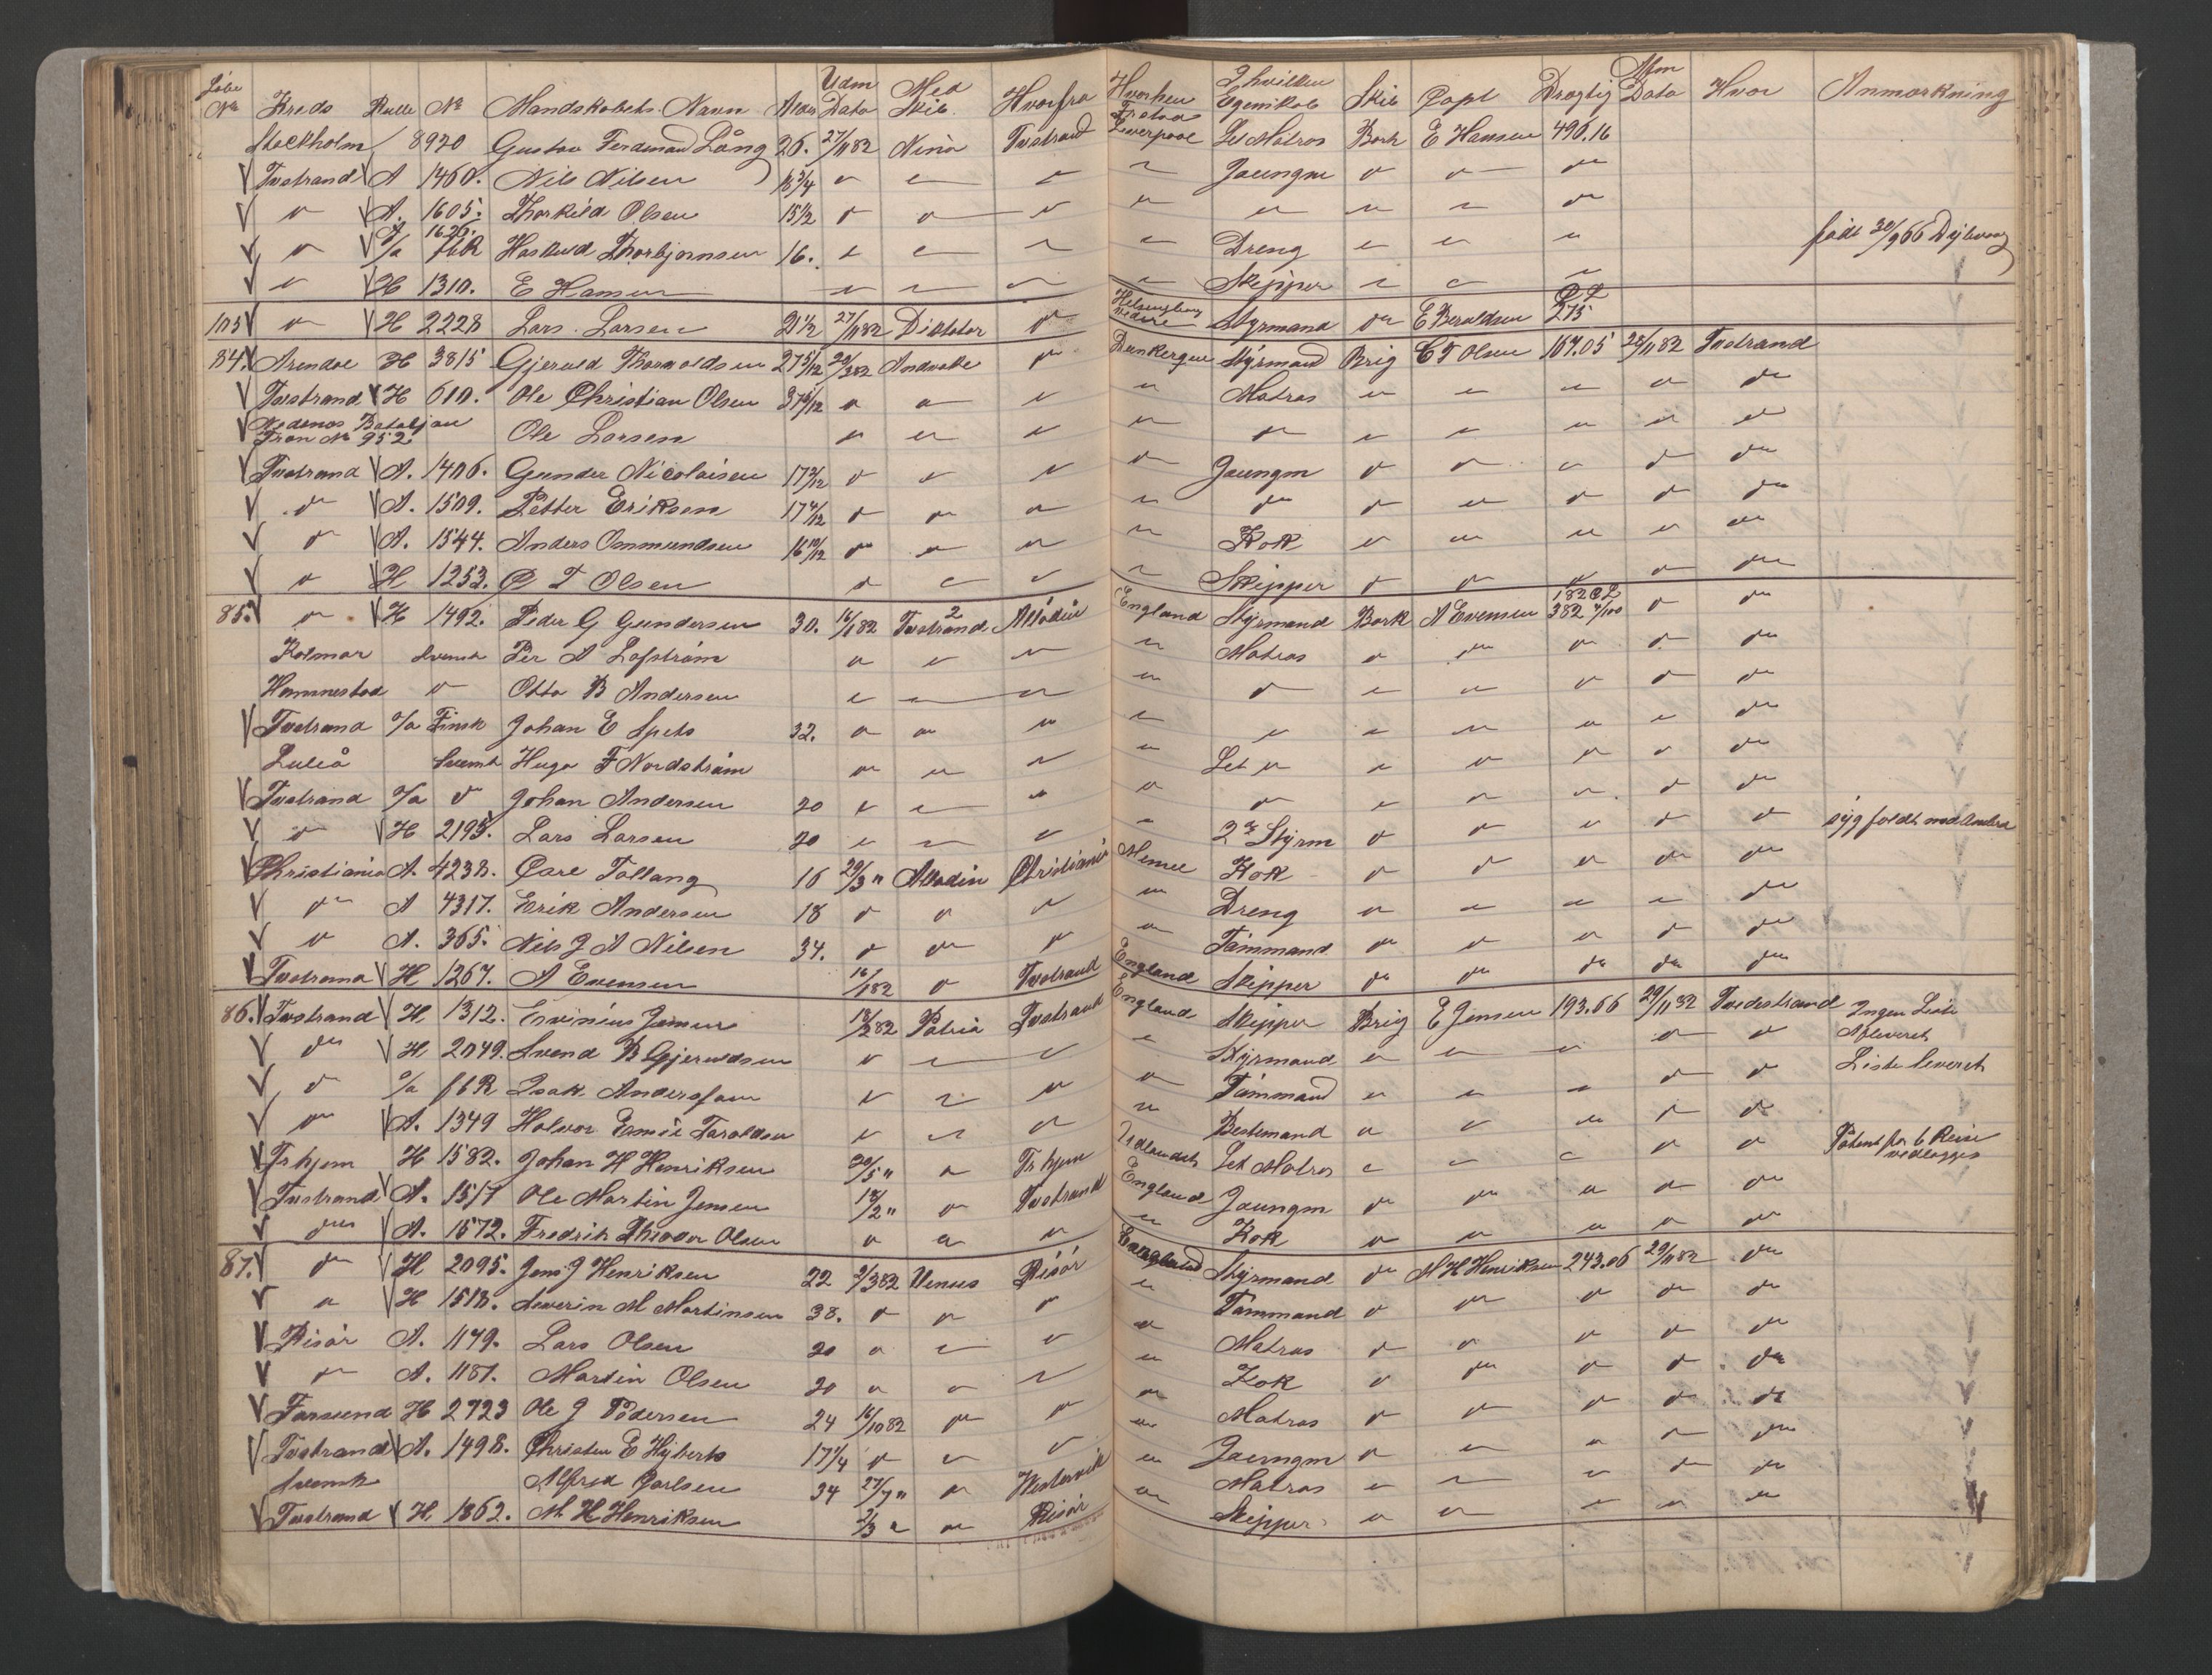 Løbe No Kreds Rulle No Mandskabets Navn Alder Udm Dato Med Skib Hvorfra Hvorhen I hvilken Egenskab Skib Capt Drægtig Møn Dato Hvor Anmærkning
Stockholm 8920 Gustav Ferdinand Lång 26. 27/11 82 Nina Tvstrand Liverpool Let Matros Bark E Hansen 490.16
V Tvstrand V A 1460. Nils Nilsen 18 3/4 " " " " Jungm " " "
V " V A. 1605. Thorkild Olsen 15 1/2 " " " " " " " "
V " V A 1620. o/a fbR Haslund Thorbjørnsen 16. " " " " Dreng " " " født 30/9 66 Dybvaag
V " V H 1310. E Hansen " " " " Skipper " " "
105 V " V H 2228 Lars Larsen 21 1/2 27/11 82 Diktator " Styrmand " E Beraldsen CL 275
84. Arendal H 3815 Gjeruld Thorvaldsen 27 5/12 20/3 82 Andvake " Dunkerque Styrmand Brig C T Olsen 167.05 28/11 82 Tvstrand
V Tvstrand V H 610. Ole Christian Olsen 37 6/12 " " " " Matros " " " " "
V Nedenæs Bataljon No 952 Ole Larsen " " " " " " " " " "
V Tvstrand V A. 1406. Gunder Nicolaisen 17 2/12 " " " " Jungm " " " " "
V " V A. 1509. Petter Eriksen 17 4/12 " " " " " " " " " "
V " V A. 1544. Anders Ommundsen 16 10/12 " " " " Kok " " " " "
V " V H 1253. C T Olsen " " " " Skipper " " " " "
85. V " V H 1492. Peder G Gundersen 30. 16/1 82 Tvstrand England Styrmand Bark A Evensen 182 CL 382 " "
Kalmar svensk Per A Lofström " " " " Matros " " " " "
" Otto B Andersen " " " " " " " " " "
V Tvstrand o/a Finsk Johan E Spets 32. " " " " " " " " " "
Luleå svensk Hugo F Nordström " " " " Let " " " " " "
V Tvstrand o/a " Johan Andersen 20 " " " " " " " " " "
V " V H 2195. Lars Larsen 20 " " " " 2n Styrm " " " " "
V Christiania A. 4238. Carl Tallang 16 20/3 " Alladin Christiania Memel Kok " " " " "
V " A 4317. Erik Andersen 18 " " " " Dreng " " " " "
V " A. 365. Nils J A Nilsen 34. " " " " Tømmand " " " " "
V Tvstrand V H 1267. A Evensen 16/1 82 " Tvstrand England Skipper " " " " "
86. V Tvstrand V H 1312. Jensen 18/2 82 Patria Tvstrand England Skipper Brig E Jensen 193.66 29/11 82 Tvedestrand Ingen Liste Afleveret
V " V H 2049. Svend B Gjeruldsen " " " " Styrmand " " " " "
V " o/a fbR Isak Andersson " " " " Tømmand " " " " " Liste leveret
V " V A. 1349 Halvor Emil Taraldsen " " " " Bestemand " " " " "
V Trhjem H 1582. Johan H Henriksen 20/5 " " Trhjem Udlandet Let Matros " " " " "
V Tvstrand V A. 1517 Ole Martin Jensen 18/2 " " Tvstrand England Jungm " " " " "
V " V A. 1572. Fredrik Thiodor Olsen " " " " Kok " " " " "
87. V " V H 2095. Jens J Henriksen 22 2/3 82 Venus Risør England Styrmand " M H Henriksen 243.06 29/11 82 "
V " V H 1518. Severin M Martinsen 38. " " " " Tømmand " " " " "
V Risør A. 1179. Lars Olsen 20 " " " " Matros " " " " "
V " A. 1181. Martin Olsen 20 " " " " Kok " " " " "
V Farsund H 2723 Ole J Pedersen 24 16/10 82 " " " Matros " " " " "
V Tvstrand V A. 1498. Christen E 17 1/4 " " " " Jungm " " " " "
Svensk Alfred Carlsen 34 27/7 " " Westervik " Matros " " " " "
V Tvstrand V H 1862. M H Henriksen 2/3 " " Risør " Skipper " " " " "